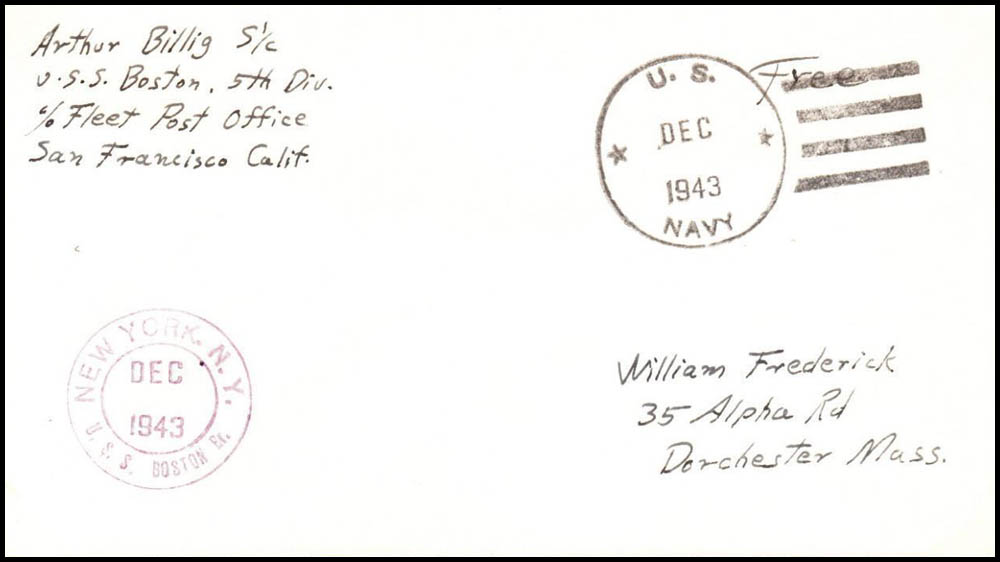 Arthur Billig S1/c
U.S.S. Boston, 5th Div.
℅ Fleet Post Office
San Francisco Calif.
U. S.
Free
DEC
1943
NAVY
NEW YORK, N.Y.
DEC
1943
U.S.S. BOSTON Br.
William Frederick
35 Alpha Rd
Dorchester Mass.